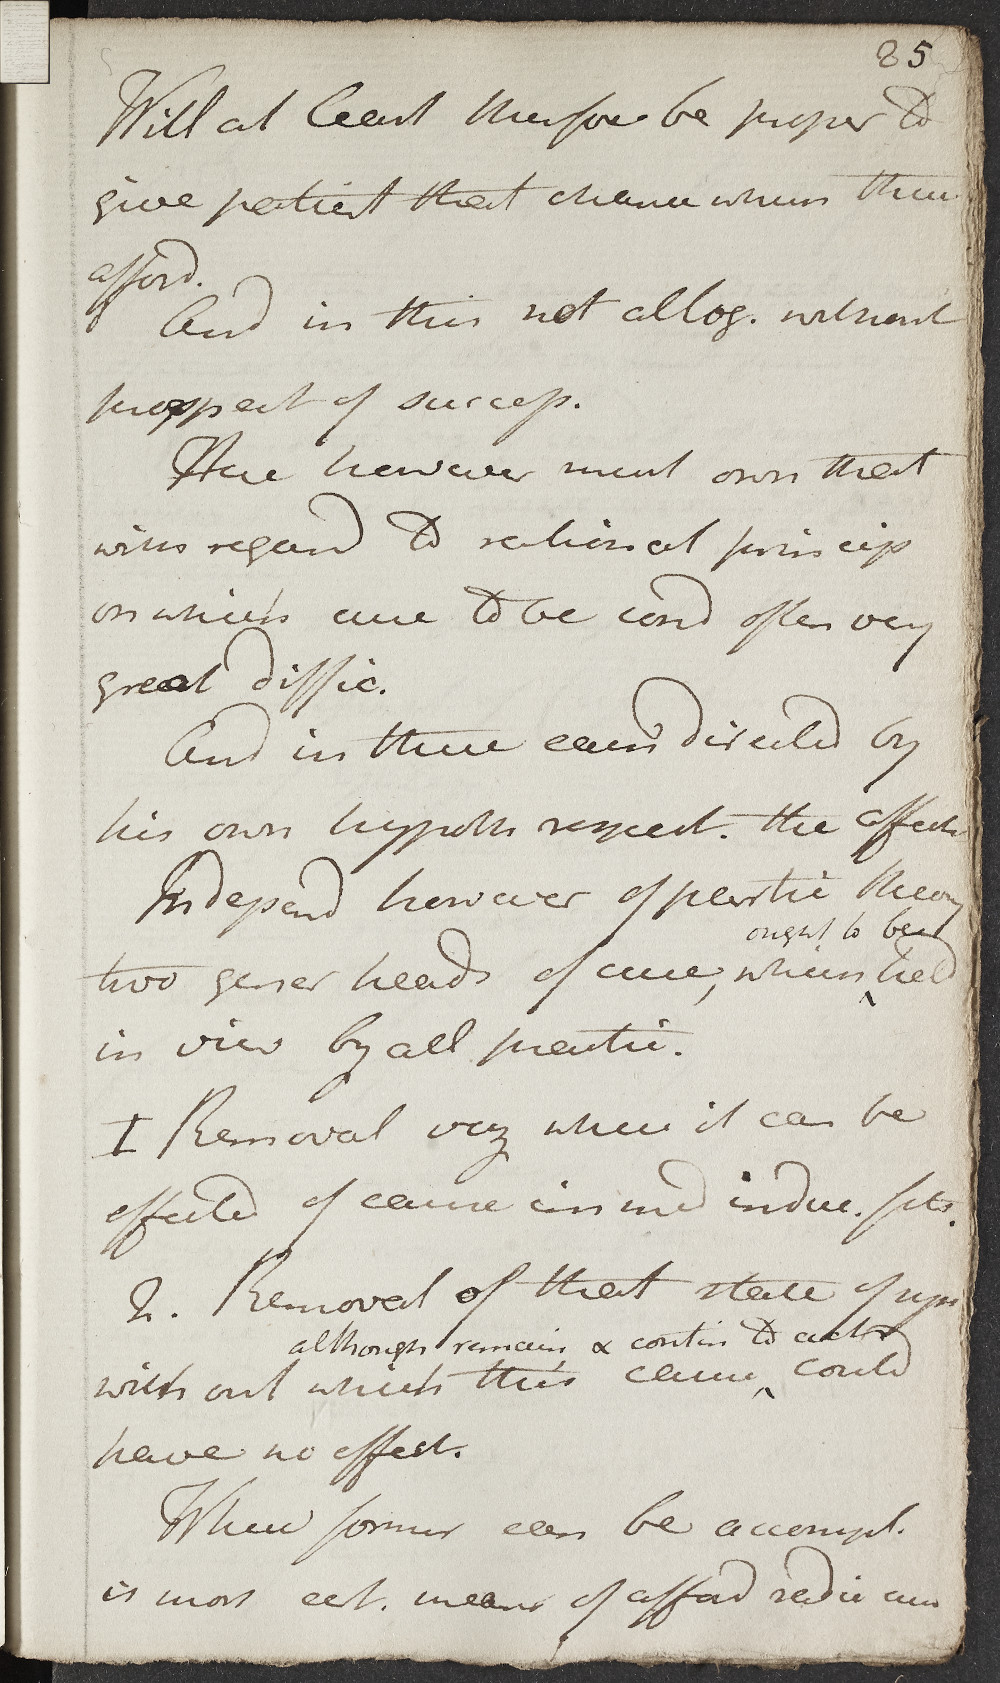 85
Will at least therefore be proper to
give patient that chance which these
afford.
And in this not altog. without
prospect of success.
Here however must own that
with regard to rational princip
on which cure to be cond often very
great diffic.
And in these each directed by
his own hypoth respect. the affect
Independ however of partic theory
ought to be
two gener heads of cure, which held
in view by all practic.
I Removal very where it can be
effected of cause immed induc. fits.
2. Removal of that state of syst
although remain & contin to act
without which this cause could
have no effect.
Where former can be accompl.
is most cert. means of afford radic cure